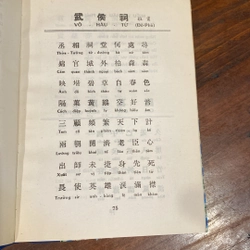 武侯祠 杜甫
VÕ HẦU TỪ (Đỗ-Phủ)
丞相祠堂何處尋
Thừa Tướng từ đường hà xứ tầm
錦官城外柏森森
Cẩm quan thành ngoại bách sâm sâm
映堦碧草自春色
隔葉黃鸝空好音
三顧頻煩天下計
兩朝開濟老臣心
Lưỡng triều khai tế lão thần tâm
出師未捷身先死
Xuất sư vị tiệp thân tiên tử
長使英雄淚滿襟
Trường sử anh hùng lệ mãn khâm
75